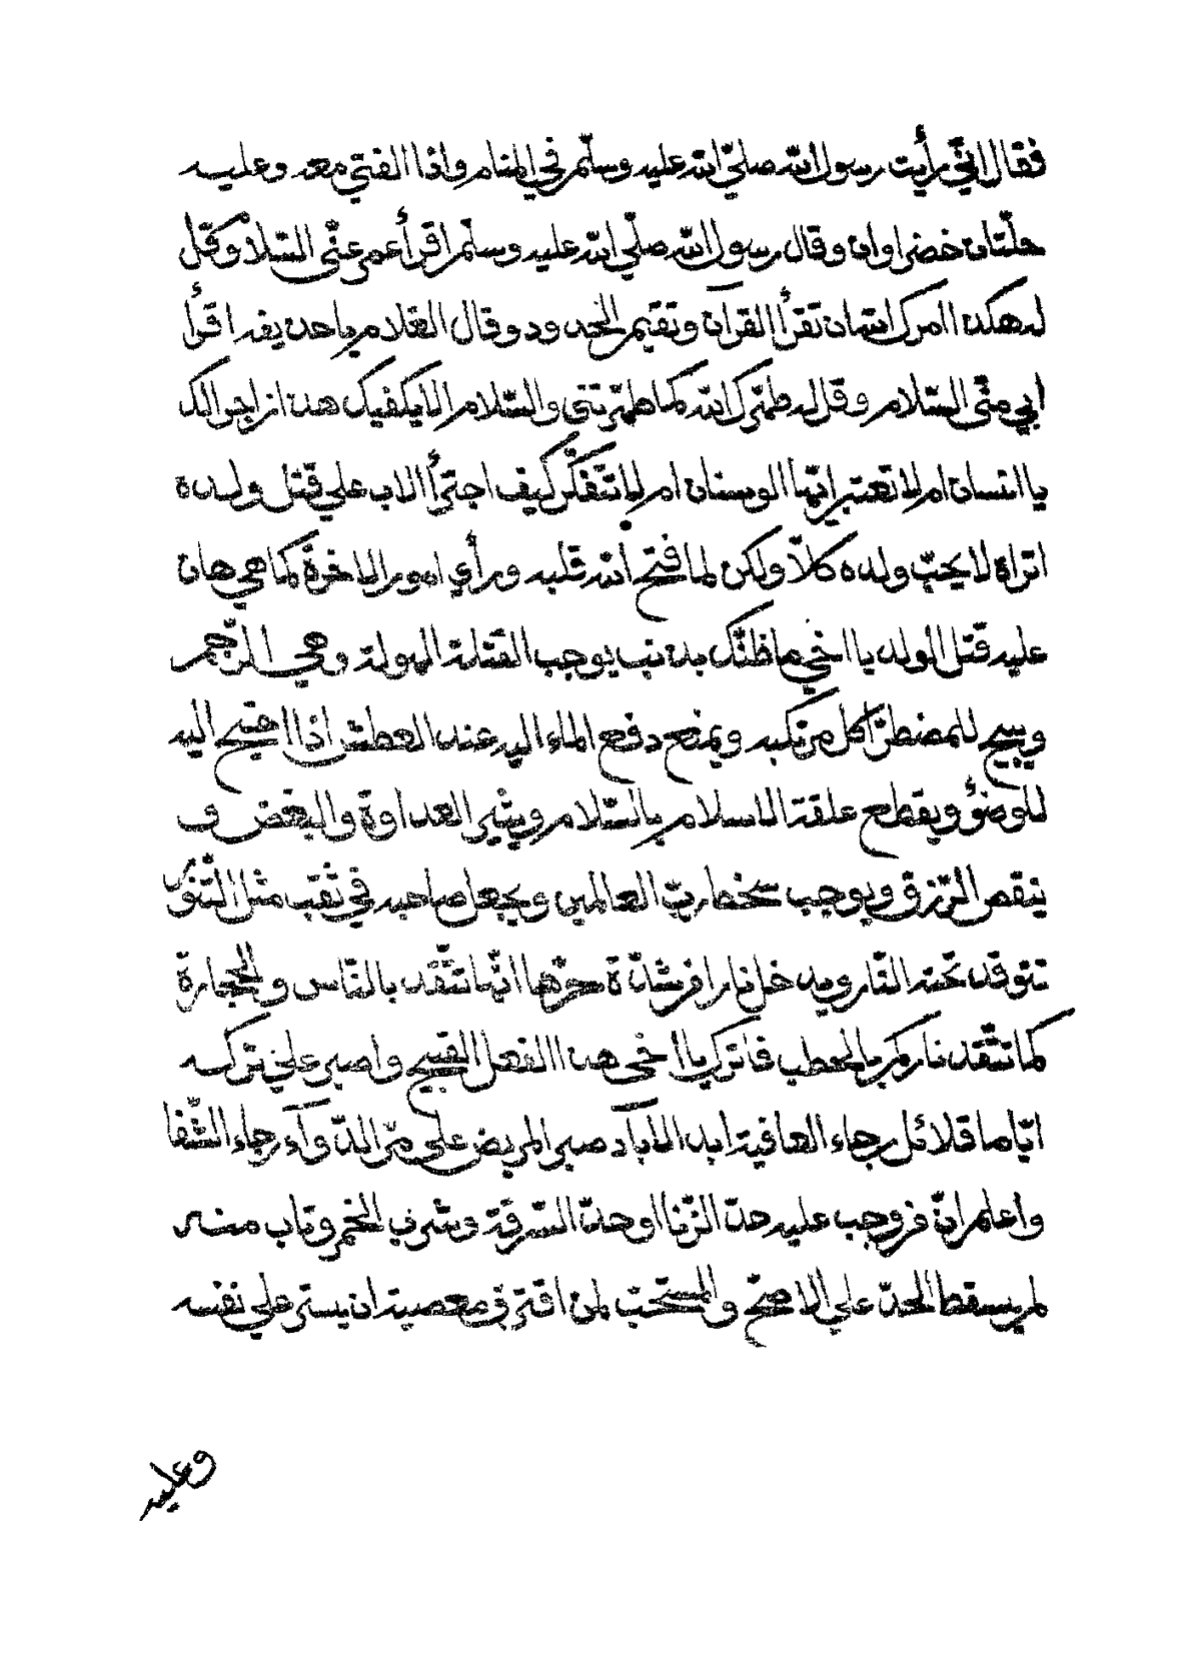 فقال انّي رأيت رسول الله صلّي الله عليه وسلّم في المنام واذا الفتي معه وعليه
حلّتان خضراوان وقال رسول الله صلّي الله عليه وسلّم اقرأ عمر عنّي السّلام وقل
له هكذا امرك الله ان تقرأ القرآن وتقيم الحدود وقال الغلام يا حذيفه اقرأ
ابي منّي السّلام وقل له طهّرك الله كما طهّرتني والسّلام الا يكفيك هذا زاجرا لك
يا انسان ام لا تعتبر ايّها الوسنان ام لا تتفكّر كيف اجترأ الاب علي قتل ولده
اتراه لا يحبّ ولده كلّا ولكن لما فتح الله قلبه ورأي امور الاخرة كما هي هان
عليه قتل الولد يا اخي ما ظنّك بذنب يوجب القتلة المهولة وهي الرّجم
ويبيح للمضطرّ اكل مرتكبه ويمنع دفع الماء اليه عند العطش اذا احتيج اليه
للوضؤ ويقطع علقة الاسلام بالسّلام ويثير العداوة والبغض و
ينقص الرّزق ويوجب سخط ربّ العالمين ويجعل صاحبه في ثقب مثل التّنّور
تتوقد تحته النّار ويدخل نارا فرشدّة حرّها انّها تتّقد بالنّاس والحجارة
كما تتّقد ناركم بالحطب فاترك يا اخي هذا الفعل القبيح واصبر علي تركه
ايّاما قلائل رجاء العافية ابد الاباد صبر المريض علي مرّ الدّواء رجاء الشّفا
واعلم انّ من وجب عليه حدّ الزّنا او حدّ السّرقة وشرب الخمر وتاب منه
لم يسقط الحدّ علي الاصحّ والمستحبّ لمن اقترف معصية ان يستر علي نفسه
وعليه